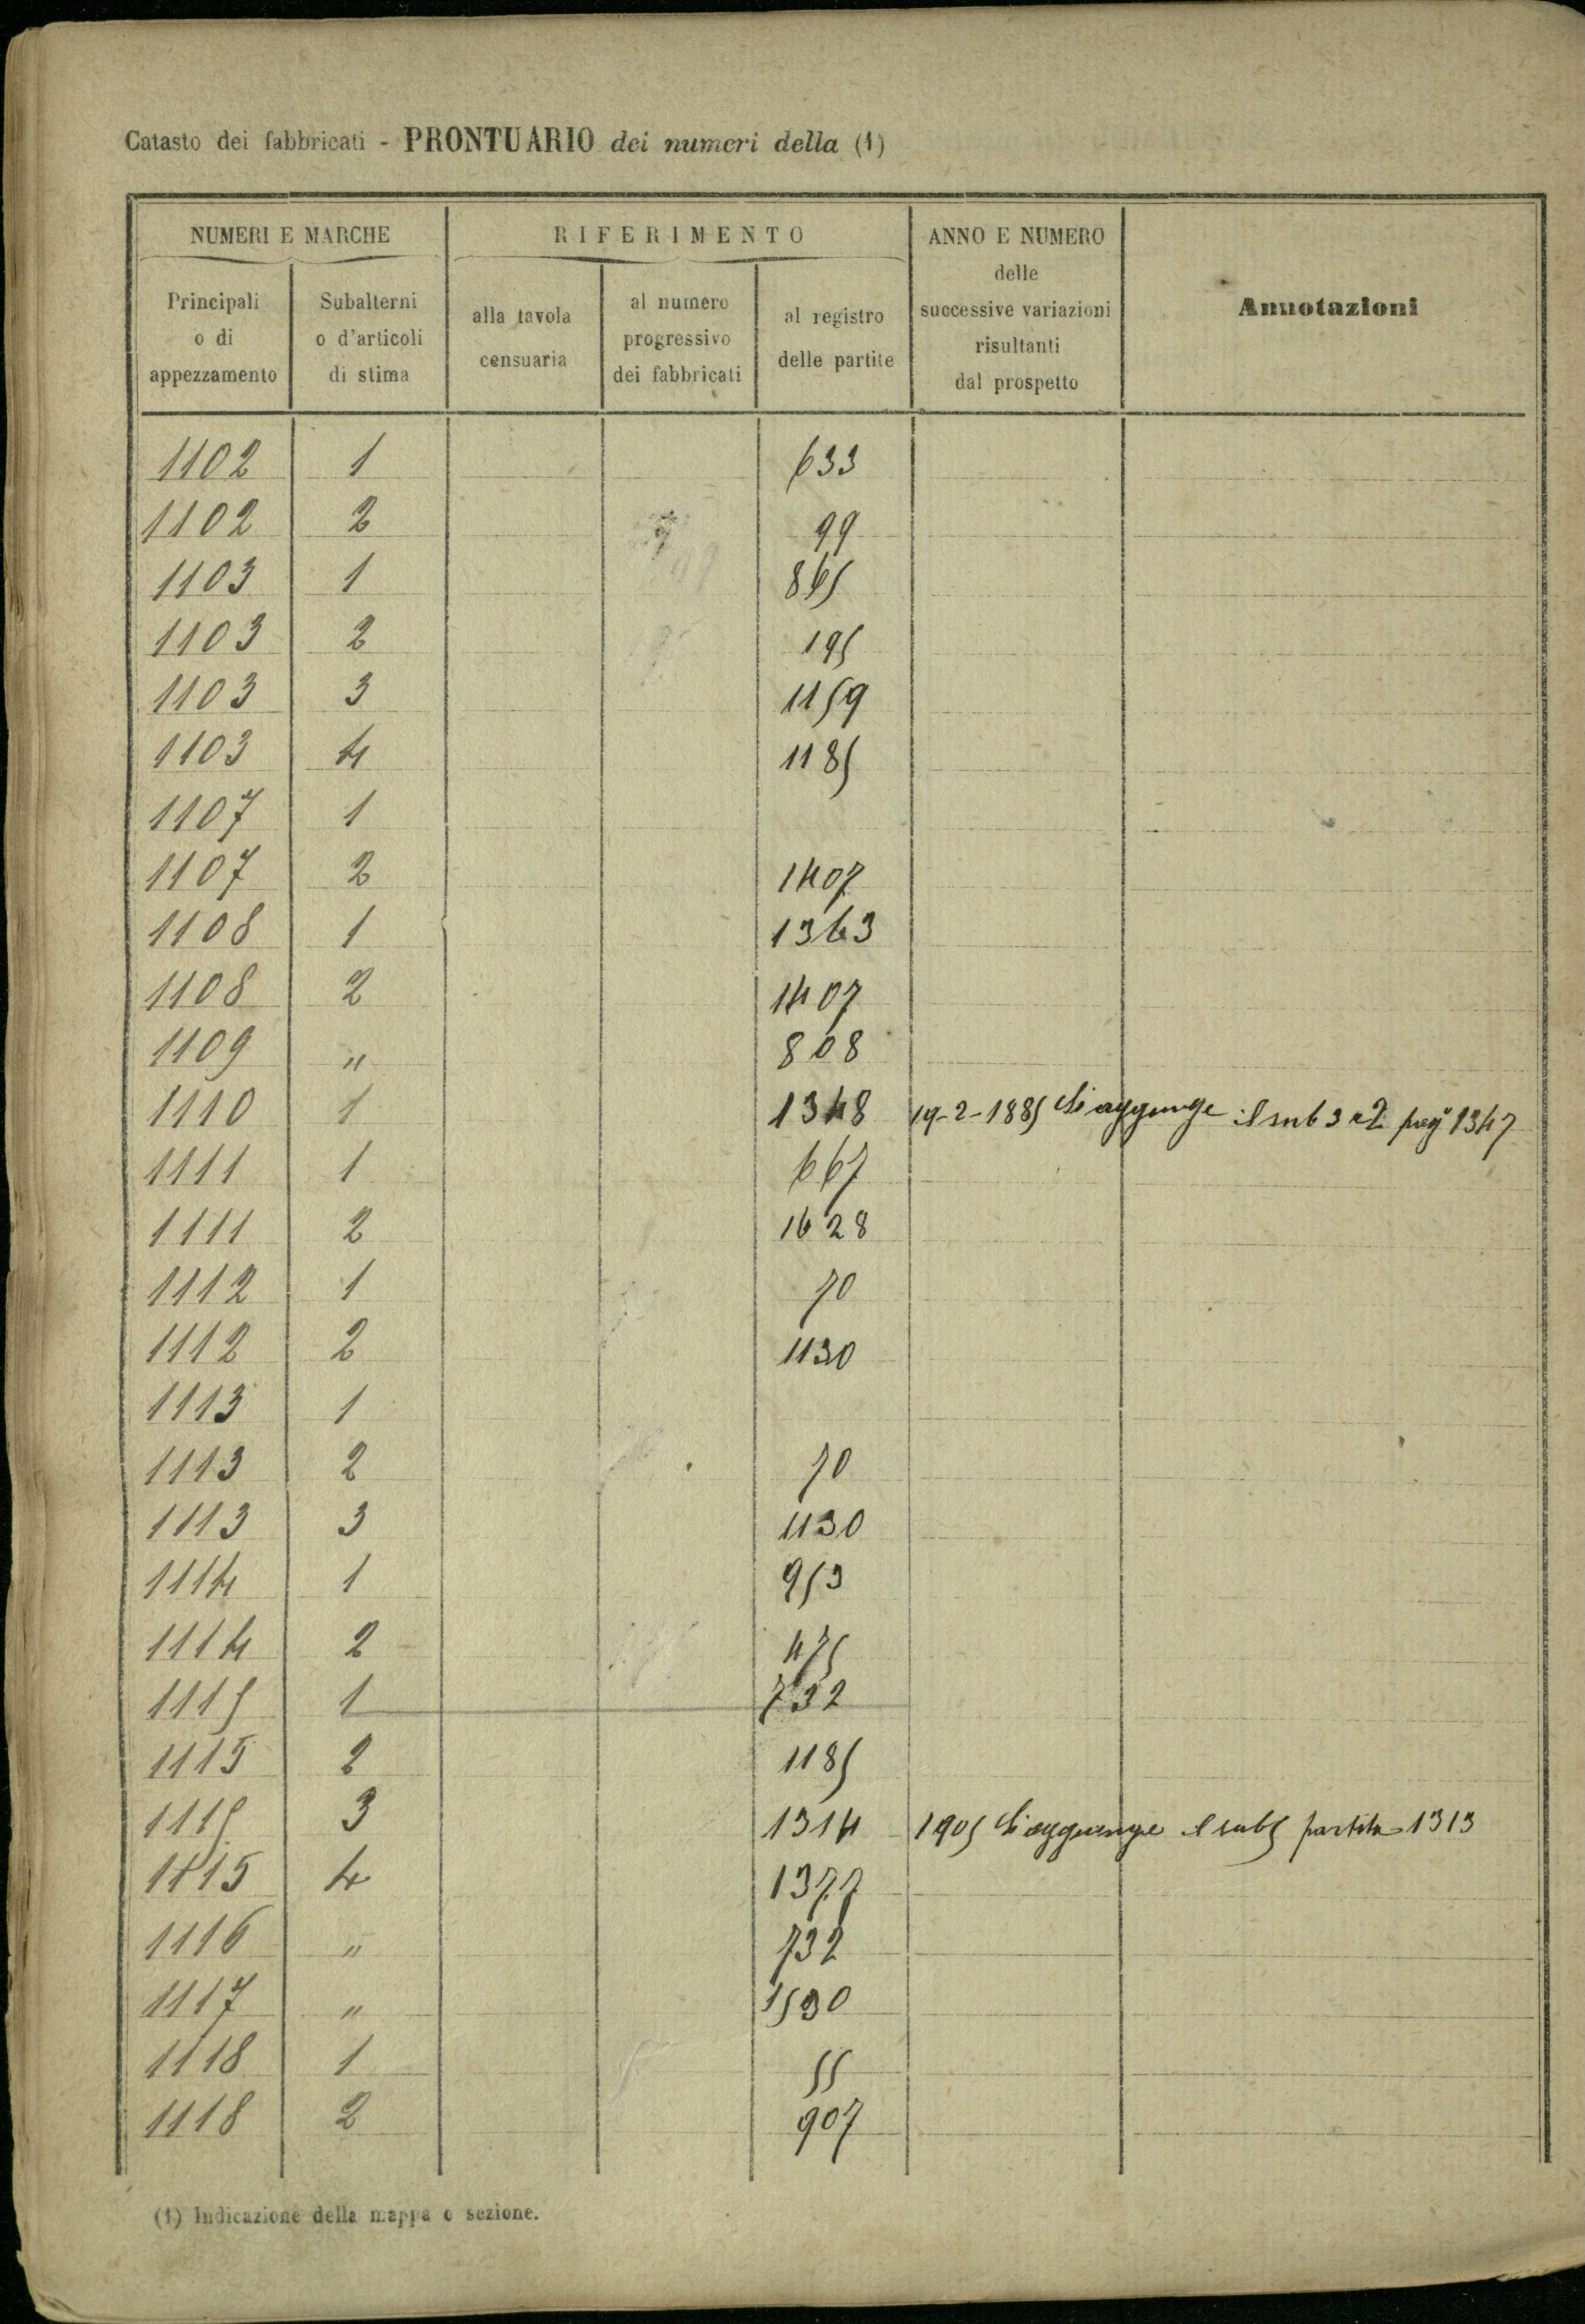 Catasto dei fabbricati - PRONTUARIO dei numeri della (1)
NUMERI E MARCHE
RIFERIMENTO
ANNO E NUMERO
delle
successive variazioni
risultanti
dal prospetto
Annotazioni
Principali
o di
appezzamento
Subalterni
o d'articoli
di stima
alla tavola
censuaria
al numero
progressivo
dei fabbricati
al registro
delle partite
1102 1 633
1102 2 99
1103 1 865
1103 2 195
1103 3 1159
1103 4 1185
1107 1
1107 2 1407
1108 1 1363
1108 2 1407
1109 " 808
1110 1 1348 19-2-1885 Si aggiunge il sub 3 1347
1111 1 667
1111 2 1628
1112 1 70
1112 2 1130
1113 1
1113 2 70
1113 3 1130
1114 1 953
1114 2 475
1115 1 732
1115 2 1185
1115 3 1314 1905 Si aggiunge il sub 5 partita 1313
1115 4 1377
1116 " 732
1117 " 1530
1118 1 55
1118 2 907
(1) Indicazione della mappa o sezione.